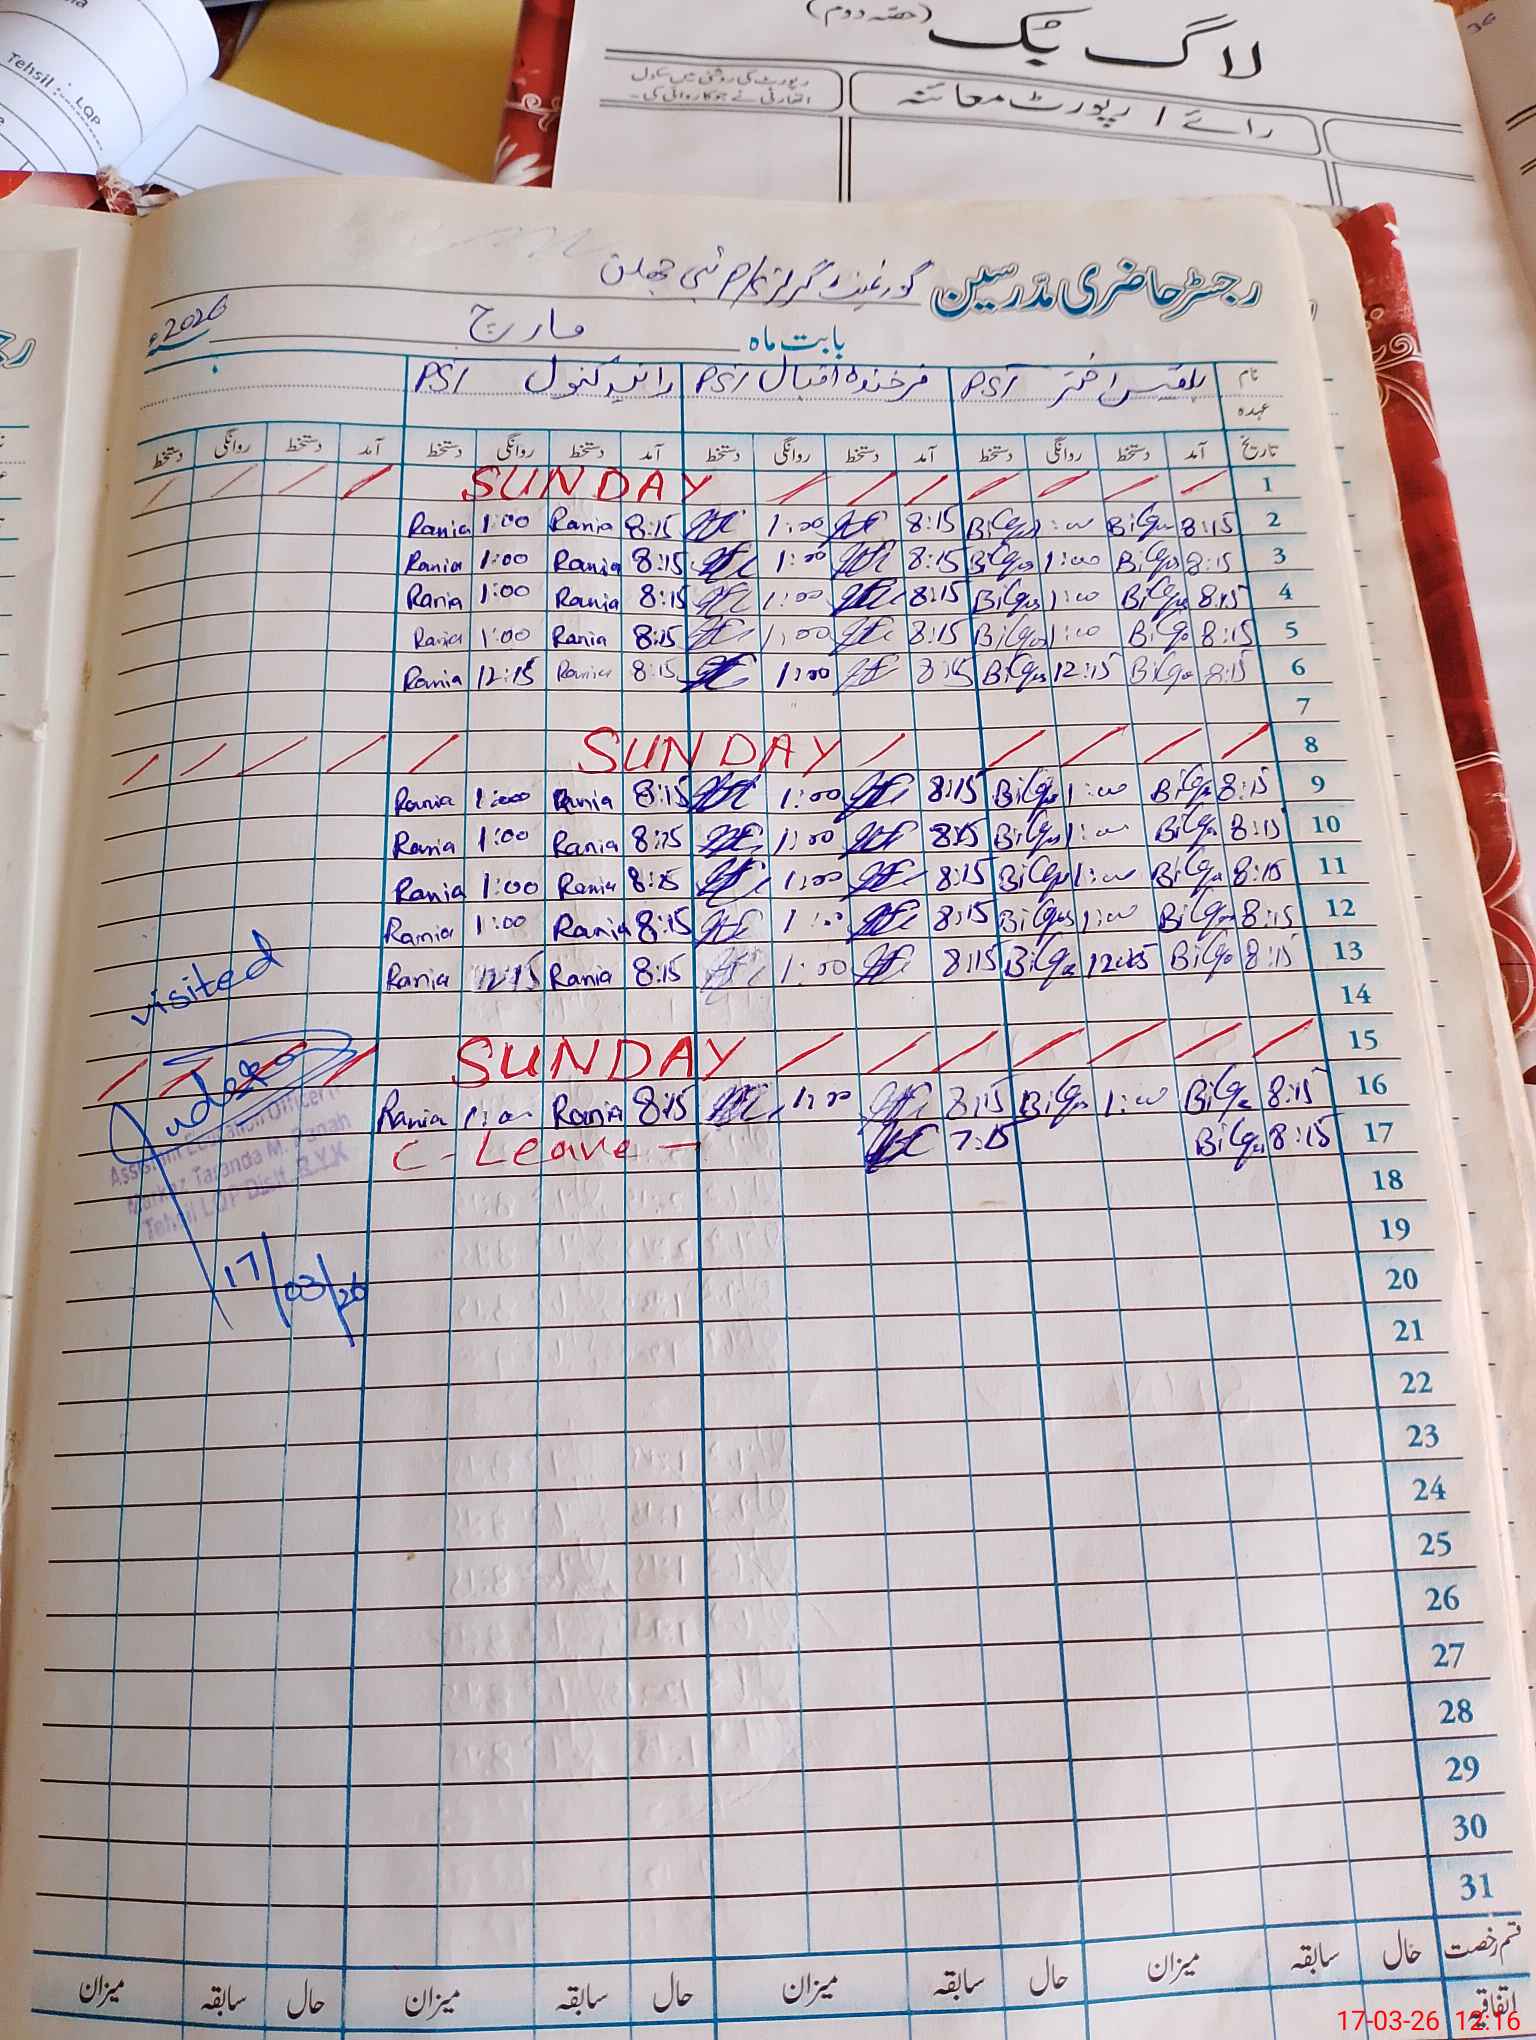 Tehsil : LQP
لاگ بک (حصہ دوم)
رپورٹ کی روشنی میں مجاز
اتھارٹی نے جو کاروائی کی۔
رائے / رپورٹ معائنہ
رجسٹر حاضری مدرسین گورنمنٹ گرلز P/S نبی
بابت ماہ مارچ سنہ 2026ء
نام بلقیس اختر PST فرخندہ اقبال PST رانیہ کنول PST
عہدہ
تاریخ آمد دستخط روانگی دستخط آمد دستخط روانگی دستخط آمد دستخط روانگی دستخط آمد دستخط روانگی دستخط
SUNDAY 1
Rania 1:00 Rania 8:15 1:00 8:15 Bilqis 1:00 Bilqis 8:15 2
Rania 1:00 Rania 8:15 1:00 8:15 Bilqis 1:00 Bilqis 8:15 3
Rania 1:00 Rania 8:15 1:00 8:15 Bilqis 1:00 Bilqis 8:15 4
Rania 1:00 Rania 8:15 1:00 8:15 Bilqis 1:00 Bilqis 8:15 5
Rania 12:15 Rania 8:15 1:00 8:15 Bilqis 12:15 Bilqis 8:15 6
7
SUNDAY 8
Rania 1:00 Rania 8:15 1:00 8:15 Bilqis 1:00 Bilqis 8:15 9
Rania 1:00 Rania 8:15 1:00 8:15 Bilqis 1:00 Bilqis 8:15 10
Rania 1:00 Rania 8:15 1:00 8:15 Bilqis 1:00 Bilqis 8:15 11
Rania 1:00 Rania 8:15 1:00 8:15 Bilqis 1:00 Bilqis 8:15 12
Rania 12:15 Rania 8:15 1:00 8:15 Bilqis 12:15 Bilqis 8:15 13
visited
14
SUNDAY 15
Rania 1:00 Rania 8:15 1:00 8:15 Bilqis 1:00 Bilqis 8:15 16
C-Leave - 7:15 Bilqis 8:15 17
Assistant Education Officer
Markaz Taranda M. Panah
Tehsil LQP Distt. R.Y.K
17/03/26
18
19
20
21
22
23
24
25
26
27
28
29
30
31
قسم رخصت حال سابقہ میزان حال سابقہ میزان حال سابقہ میزان حال سابقہ میزان
اتفاقیہ
17-03-26 12:16